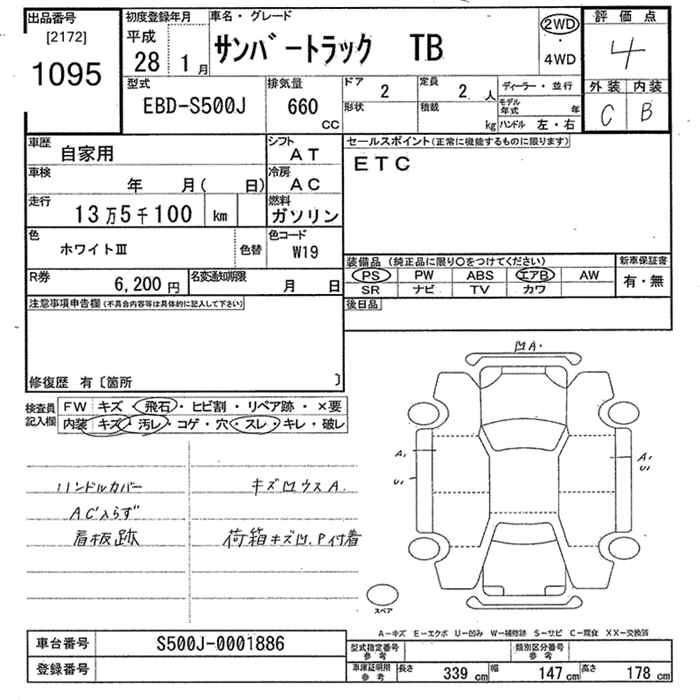 出品番号 初度登録年月 車名・グレード 2WD 評価点
[2172] 平成
1095 28 1月 サンバートラック TB ・ 4WD 4
型式 排気量 ドア 2 定員 2人 ディーラー・並行 外装 内装
EBD-S500J 660 cc 形状 積載 kg モデル年式 年 C B
ハンドル 左・右
車歴 自家用 シフト AT セールスポイント(正常に機能するものに限ります)
車検 年 月( 日) 冷房 AC ETC
走行 13万5千100 km 燃料 ガソリン
色 ホワイトⅢ 色替 色コード W19
装備品 (純正品に限り○をつけてください) 新車保証書
R券 6,200円 名変通知期限 月 日 PS PW ABS エアB AW 有・無
SR ナビ TV カワ
注意事項申告欄(不具合内容等は具体的に記入して下さい) 後日品
修復歴 有〔箇所 〕
検査員記入欄 FW キズ・飛石・ヒビ割・リペア跡・×要
内装 キズ・汚レ・コゲ・穴・スレ・キレ・破レ
凹A.
A, U,
A, U,
ハンドルカバー キズ凹ウスA.
AC入らず
看板跡 荷箱キズ凹.P付着
スペア
A-キズ E-エクボ U-凹み W-補修跡 S-サビ C-腐食 XX-交換済
車台番号 S500J-0001886 型式指定番号 参考 類別区分番号 参考
登録番号 車庫証明用 参考 長さ 339cm 幅 147cm 高さ 178cm